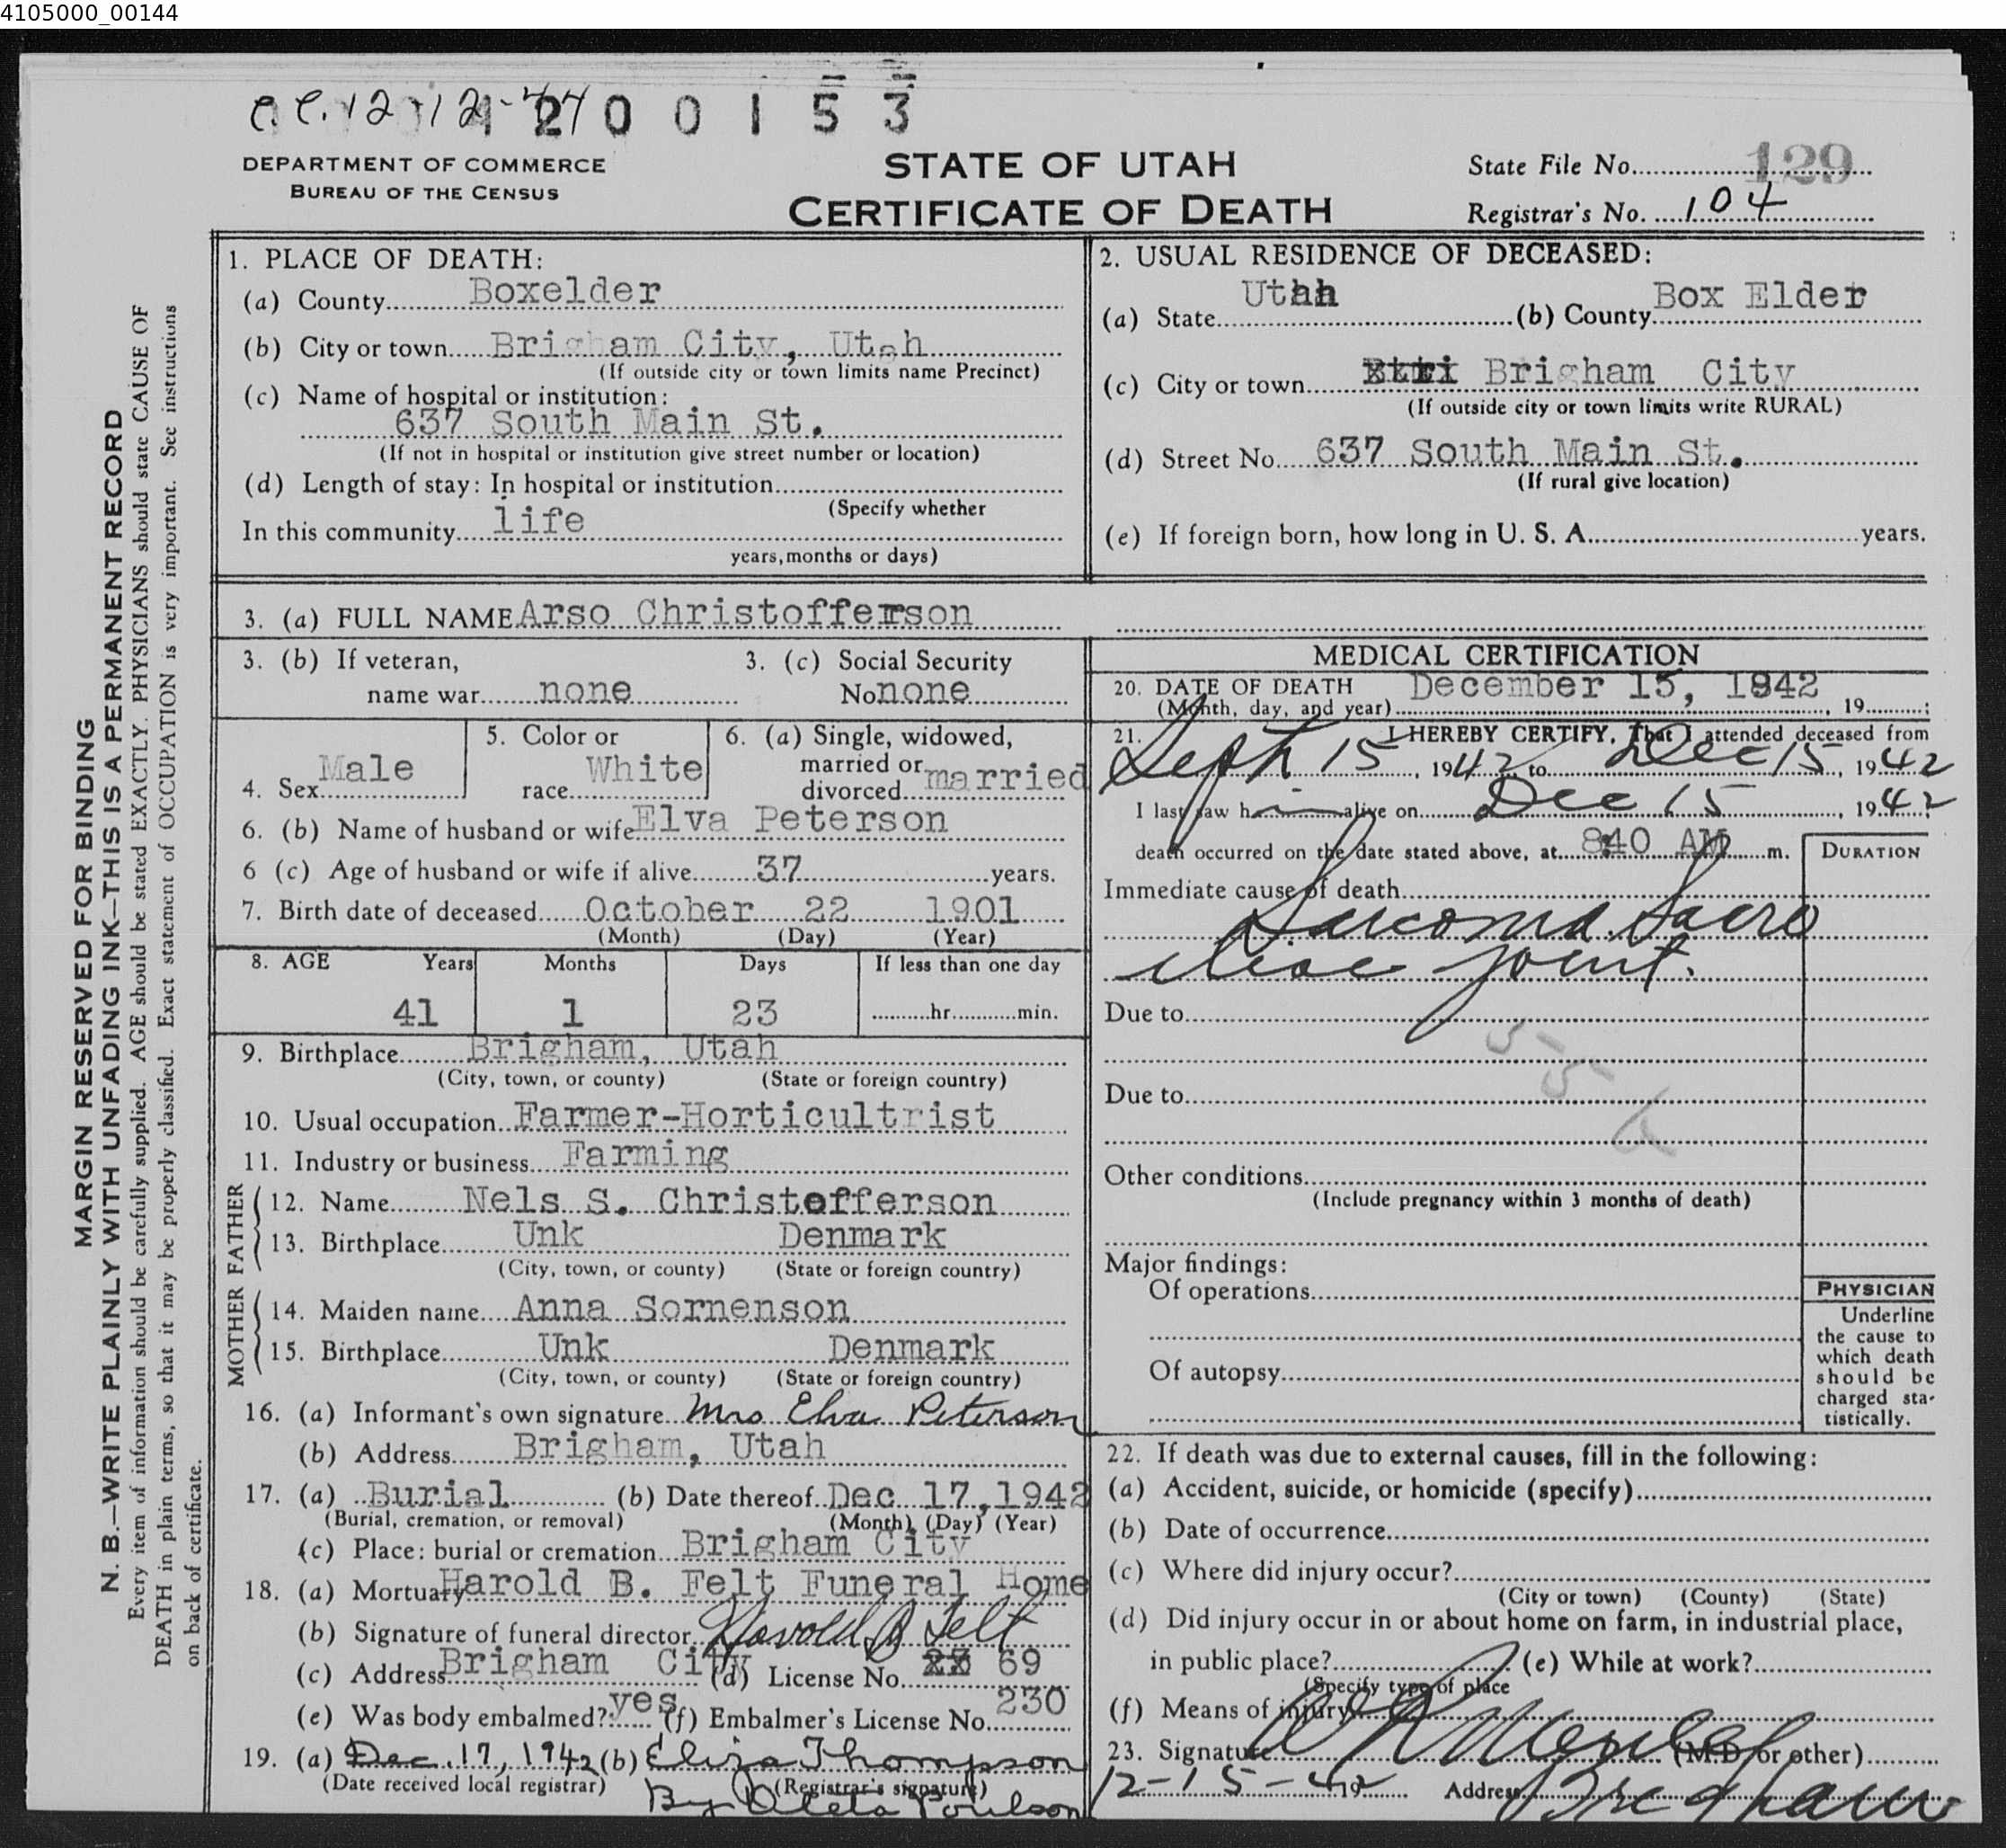 4105000_00144
c.c. 12-12-44
4200153
DEPARTMENT OF COMMERCE
BUREAU OF THE CENSUS
STATE OF UTAH
CERTIFICATE OF DEATH
State File No. 129
Registrar's No. 104
MARGIN RESERVED FOR BINDING
N. B.—WRITE PLAINLY WITH UNFADING INK—THIS IS A PERMANENT RECORD
Every item of information should be carefully supplied. AGE should be stated EXACTLY. PHYSICIANS should state CAUSE OF
DEATH in plain terms, so that it may be properly classified. Exact statement of OCCUPATION is very important. See instructions
on back of certificate.
1. PLACE OF DEATH:
(a) County Boxelder
(b) City or town Brigham City, Utah
(If outside city or town limits name Precinct)
(c) Name of hospital or institution:
637 South Main St.
(If not in hospital or institution give street number or location)
(d) Length of stay: In hospital or institution
(Specify whether
In this community life
years, months or days)
2. USUAL RESIDENCE OF DECEASED:
(a) State Utah (b) County Box Elder
(c) City or town Brigham City
(If outside city or town limits write RURAL)
(d) Street No. 637 South Main St.
(If rural give location)
(e) If foreign born, how long in U. S. A. years.
3. (a) FULL NAME Arso Christofferson
3. (b) If veteran, 3. (c) Social Security
name war none No none
5. Color or 6. (a) Single, widowed,
married or
4. Sex Male race White divorced married
6. (b) Name of husband or wife Elva Peterson
6 (c) Age of husband or wife if alive 37 years.
7. Birth date of deceased October 22 1901
(Month) (Day) (Year)
8. AGE Years Months Days If less than one day
41 1 23 hr. min.
9. Birthplace Brigham, Utah
(City, town, or county) (State or foreign country)
10. Usual occupation Farmer-Horticultrist
11. Industry or business Farming
FATHER
12. Name Nels S. Christofferson
13. Birthplace Unk Denmark
(City, town, or county) (State or foreign country)
MOTHER
14. Maiden name Anna Sornenson
15. Birthplace Unk Denmark
(City, town, or county) (State or foreign country)
16. (a) Informant's own signature Mrs Elva Peterson
(b) Address Brigham, Utah
17. (a) Burial (b) Date thereof Dec 17, 1942
(Burial, cremation, or removal) (Month) (Day) (Year)
(c) Place: burial or cremation Brigham City
18. (a) Mortuary Harold B. Felt Funeral Home
(b) Signature of funeral director Harold B Felt
(c) Address Brigham City (d) License No. 69
(e) Was body embalmed? yes (f) Embalmer's License No. 230
19. (a) Dec. 17, 1942 (b) Eliza Thompson
(Date received local registrar) (Registrar's signature)
By Oleta Poulson
MEDICAL CERTIFICATION
20. DATE OF DEATH December 15, 1942
(Month, day, and year) , 19 ;
21. I HEREBY CERTIFY, That I attended deceased from
Sept 15, 1942 to Dec 15, 1942
I last saw him alive on Dec 15, 1942;
death occurred on the date stated above, at 8:40 AM m.
DURATION
Immediate cause of death
Sarcoma Sacro
iliac joint.
Due to
5
5
Due to
6
Other conditions
(Include pregnancy within 3 months of death)
Major findings:
Of operations
Of autopsy
PHYSICIAN
Underline
the cause to
which death
should be
charged sta-
tistically.
22. If death was due to external causes, fill in the following:
(a) Accident, suicide, or homicide (specify)
(b) Date of occurrence
(c) Where did injury occur?
(City or town) (County) (State)
(d) Did injury occur in or about home on farm, in industrial place,
in public place? (e) While at work?
(Specify type of place
(f) Means of injury
23. Signature (M.D. or other)
12-15-42 19 Address Brigham